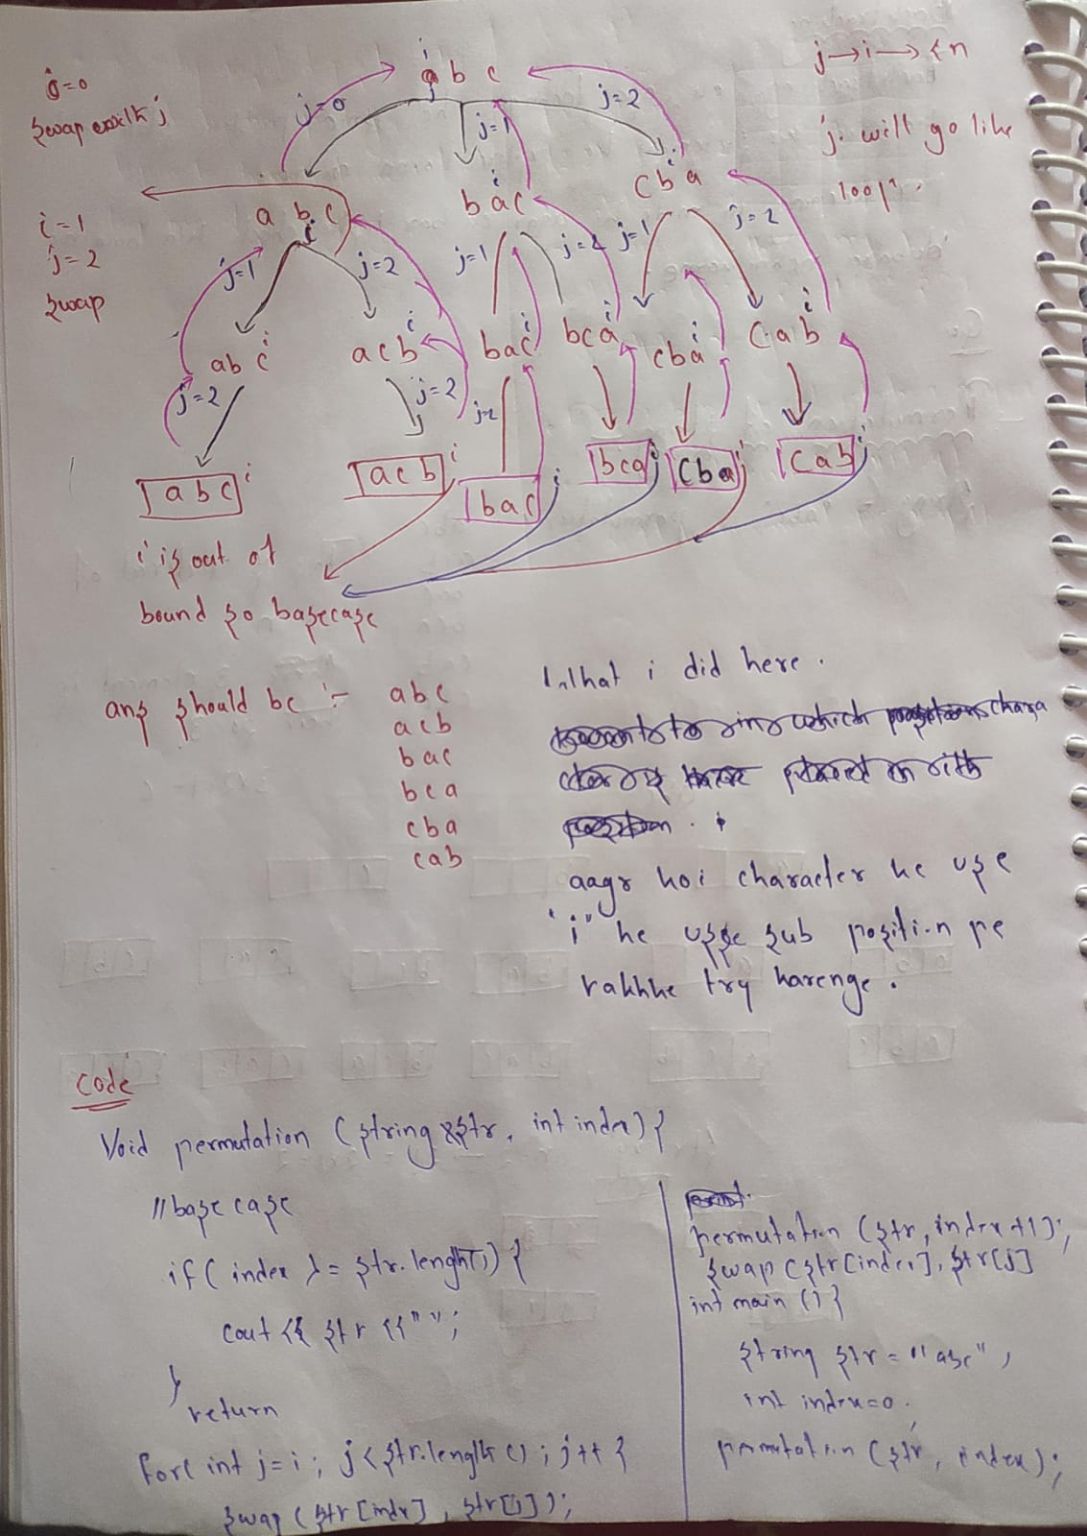 i
a b c
j
j → i → < n
i=0
swap with j
j=0
j=1
j=2
j. will go like
loop.
i=1
j=2
swap
a b c
i
i
b a c
i
c b a
j=1
j=2
j=1
j=2
j=1
j=2
i
ab c
i
a c b
i
bac
i
bca
i
cba
i
C a b
j=2
j=2
j=2
a b c i
a c b i
bac i
bca i
Cba i
Cab i
i is out of
bound so basecase
ans should be :- abc
acb
bac
bca
cba
cab
What i did here.
aagr koi character he use
"i" he usse sub position pe
rakhke try karenge.
Code
Void permutation (string &str, int index) {
// base case
if( index >= str.length()) {
cout << str << " ";
}
return
for( int j=i; j<str.length(); j++ {
swap (str[index], str[j]);
permutation (str, index+1);
swap (str[index], str[j]
int main () {
string str = "abc";
int index=0.
permutation (str, index);